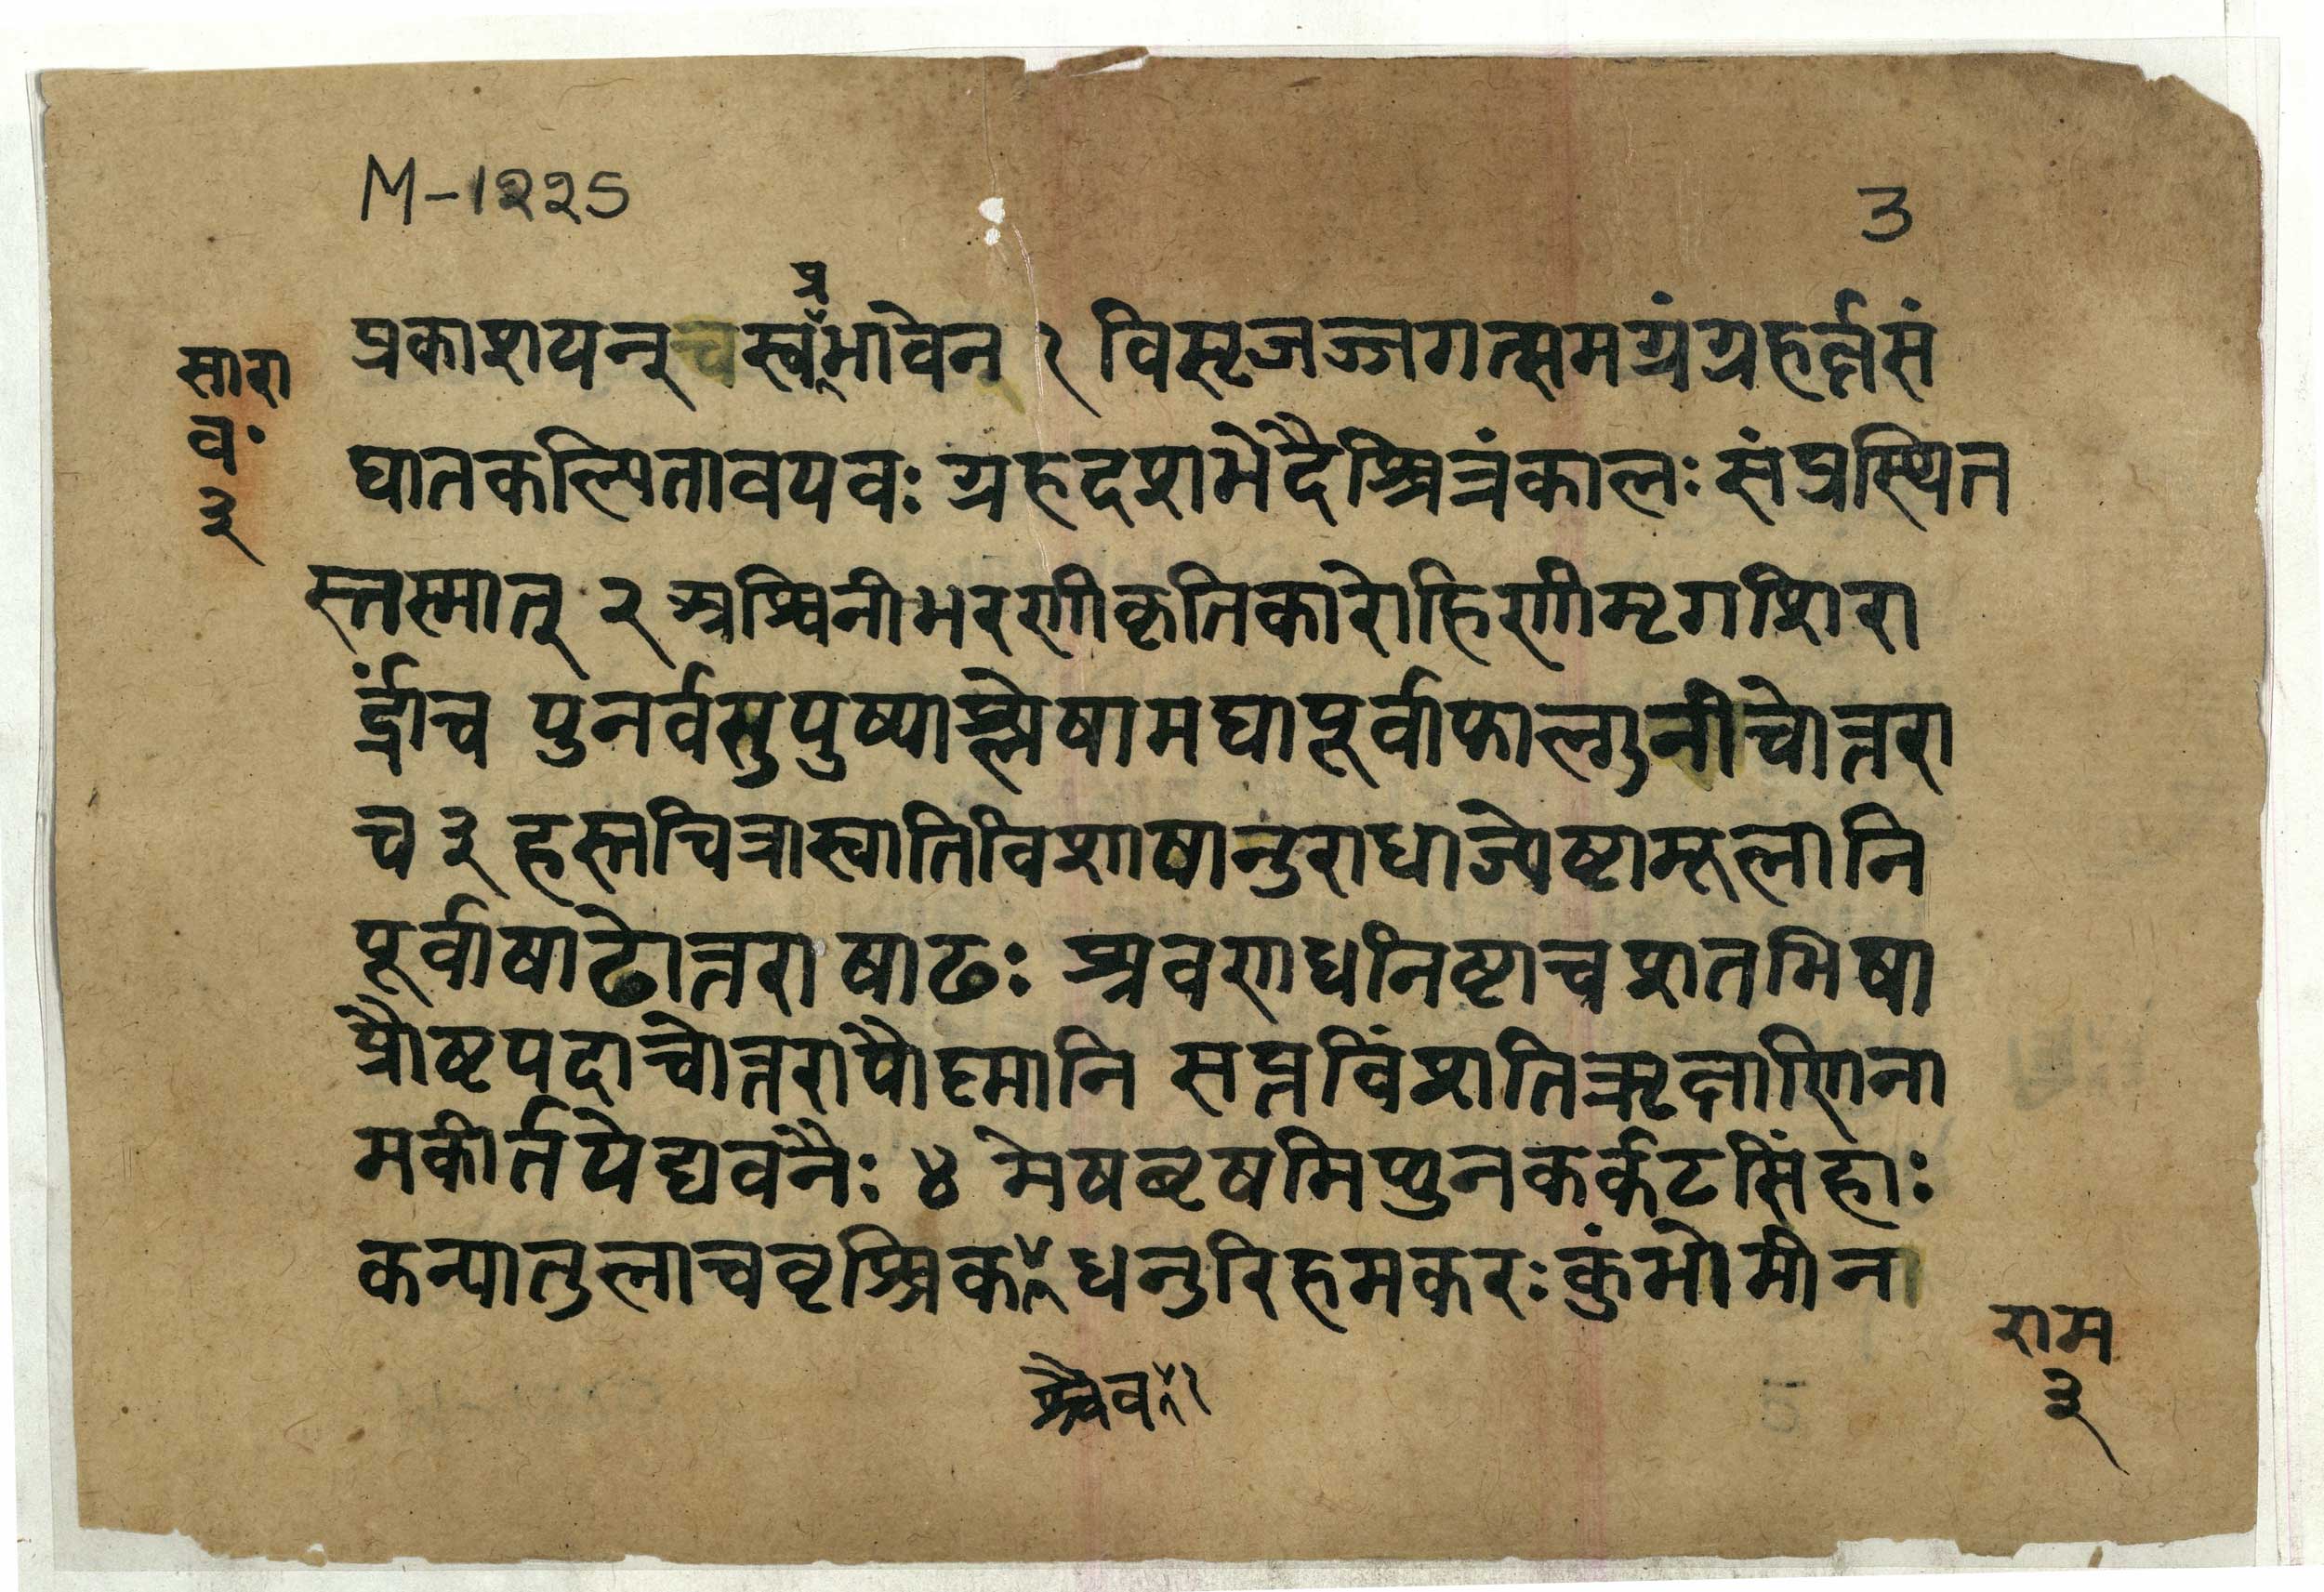 M-1225
3
प्र
प्रकाशयन् च स्व भावेन १ विसृजज्जगत्समग्रं ग्रहर्क्षसं
सारा
व॰
३
घातकल्पितावयवः ग्रहदशभेदैश्चित्रंकालः संप्रस्थित
स्तस्मात् २ अश्विनीभरणीकृतिकारोहिणीमृगशिरा
र्द्रांच पुनर्वसुपुष्याश्लेषामघापूर्वाफाल्गुनीचोत्तरा
च ३ हस्तचित्रास्वातिविशाषानुराधाज्येष्टामूलानि
पूर्वाषाढोत्तराषाढः श्रवणधनिष्टाचशतभिषा
प्रौष्टपदाचोत्तरापौष्मानि सप्तविंशतिऋक्षाणिना
मकीर्तयेद्यवनैः ४ मेषवृषमिथुनकर्कटसिंहाः
कन्यातुलाचवृश्चिक धनुरिहमकरःकुंभोमीना
श्चैव
राम
३